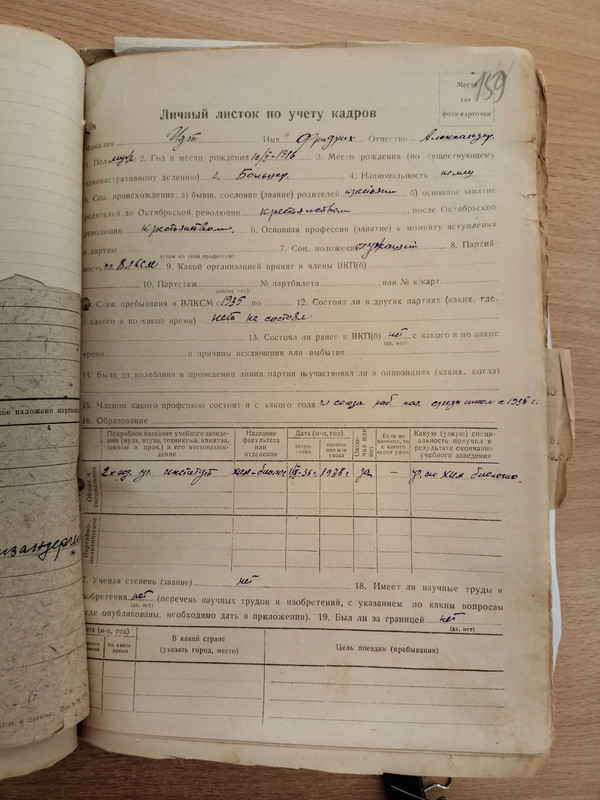 159
Место
для
фото-карточки
Личный листок по учету кадров
Фамилия Имя Фридрих Отчество Александр.
1. Пол муж 2. Год и месяц рождения 1916 3. Место рождения (по существующему
административному делению) г. Бальцер. 4. Национальность немец
5. Соц. происхождение: а) бывш. сословие (звание) родителей крестьян б) основное занятие
родителей до Октябрьской революции крестьянством, после Октябрьской
революции крестьянством. 6. Основная профессия (занятие) к моменту вступления
в партию 7. Соц. положение служащий 8. Партий-
(стаж по этой профессии)
ность чл ВЛКСМ 9. Какой организацией принят в члены ВКП(б)
10. Партстаж № партбилета или № к/карт.
(месяц, год)
11. Стаж пребывания в ВЛКСМ с 1935 по 12. Состоял ли в других партиях (каких, где,
с какого и по какое время) нет не состоял
13. Состоял ли ранее в ВКП(б) нет с какого и по какое
(да, нет)
время и причины исключения или выбытия
14. Были ли колебания в проведении линии партии и участвовал ли в оппозициях (каких, когда)
15. Членом какого профсоюза состоит и с какого года чл союза раб нач средн школ с 1936 г.
16. Образование
Подробное название учебного заведе-
ния (вуза, втуза, техникума, комвуза,
школы и проч.) и его местонахож-
дение
Название
факультета
или
отделения
Дата (м-ц, год)
поступ-
ления
оконча-
ния или
ухода
Окон-
чил или
нет
Если не
окончил, то
с какого
курса ушел
Какую (узкую) специ-
альность получил в
результате окончания
учебного заведения
Общее и
специальное
2х год. уч. институт хим-биолог 36 г. 1938 г. да — хим биологию.
Партийно-
политическое
17. Ученая степень (звание) нет 18. Имеет ли научные труды и
изобретения нет (перечень научных трудов и изобретений, с указанием по каким вопросам
(да, нет)
и где опубликованы, необходимо дать в приложении). 19. Был ли за границей нет
(да, нет)
Дата (м-ц, год)
по какое
время
В какой стране
(указать город, место)
Цель поездки (пребывания)